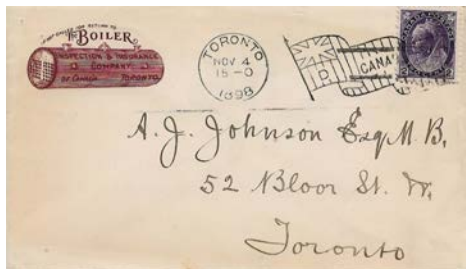 IF NOT CALLED FOR RETURN TO
THE BOILER
INSPECTION & INSURANCE
COMPANY
OF CANADA. TORONTO.
TORONTO
NOV 4
15-0
1898
D
CANA
A. J. Johnson Esq. M. B.
52 Bloor St. W.
Toronto